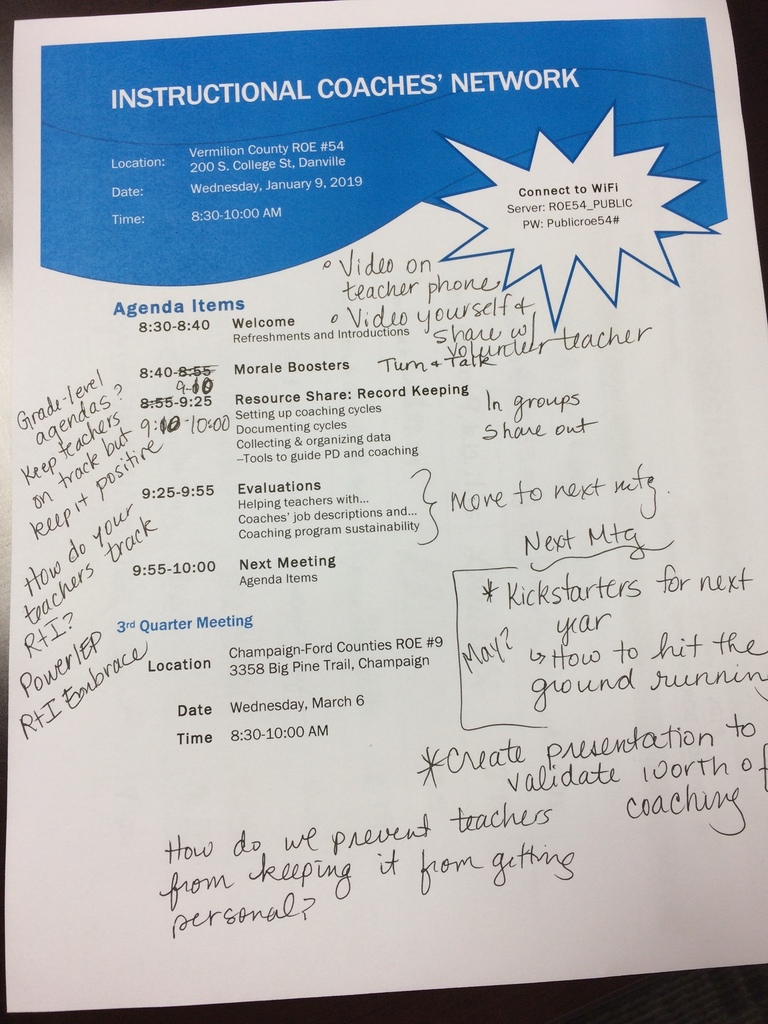 INSTRUCTIONAL COACHES' NETWORK
Location: Vermilion County ROE #54
200 S. College St, Danville
Date: Wednesday, January 9, 2019
Time: 8:30-10:00 AM
Connect to WiFi
Server: ROE54_PUBLIC
PW: Publicroe54#
• Video on
teacher phone
• Video yourself +
share w/
volunteer teacher
Agenda Items
8:30-8:40 Welcome
Refreshments and Introductions
8:40-8:55 Morale Boosters Turn + Talk
9:10
8:55-9:25 Resource Share: Record Keeping
9:10-10:00 Setting up coaching cycles
Documenting cycles
Collecting & organizing data
--Tools to guide PD and coaching
In groups
share out
9:25-9:55 Evaluations
Helping teachers with...
Coaches' job descriptions and...
Coaching program sustainability
Move to next mtg.
9:55-10:00 Next Meeting
Agenda Items
Grade-level
agendas?
Keep teachers
on track but
keep it positive
How do your
teachers track
RtI?
PowerIEP
RtI Embrace
3rd Quarter Meeting
Location Champaign-Ford Counties ROE #9
3358 Big Pine Trail, Champaign
Date Wednesday, March 6
Time 8:30-10:00 AM
Next Mtg
May?
* Kickstarters for next
year
↳ How to hit the
ground runnin
* Create presentation to
validate worth of
coaching
How do we prevent teachers
from keeping it from getting
personal?